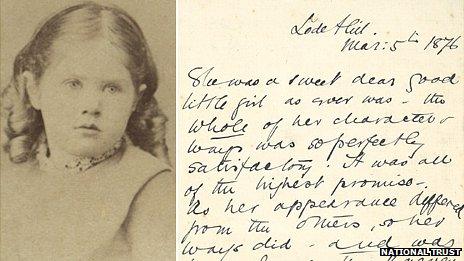 Lode Hill.
Mar: 5th 1876
She was a sweet dear good
little girl as ever was - the
whole of her character &
ways was so perfectly
satisfactory. it was all
of the highest promise -
As her appearance differed
from the others, so her
ways did - and was
NATIONAL TRUST